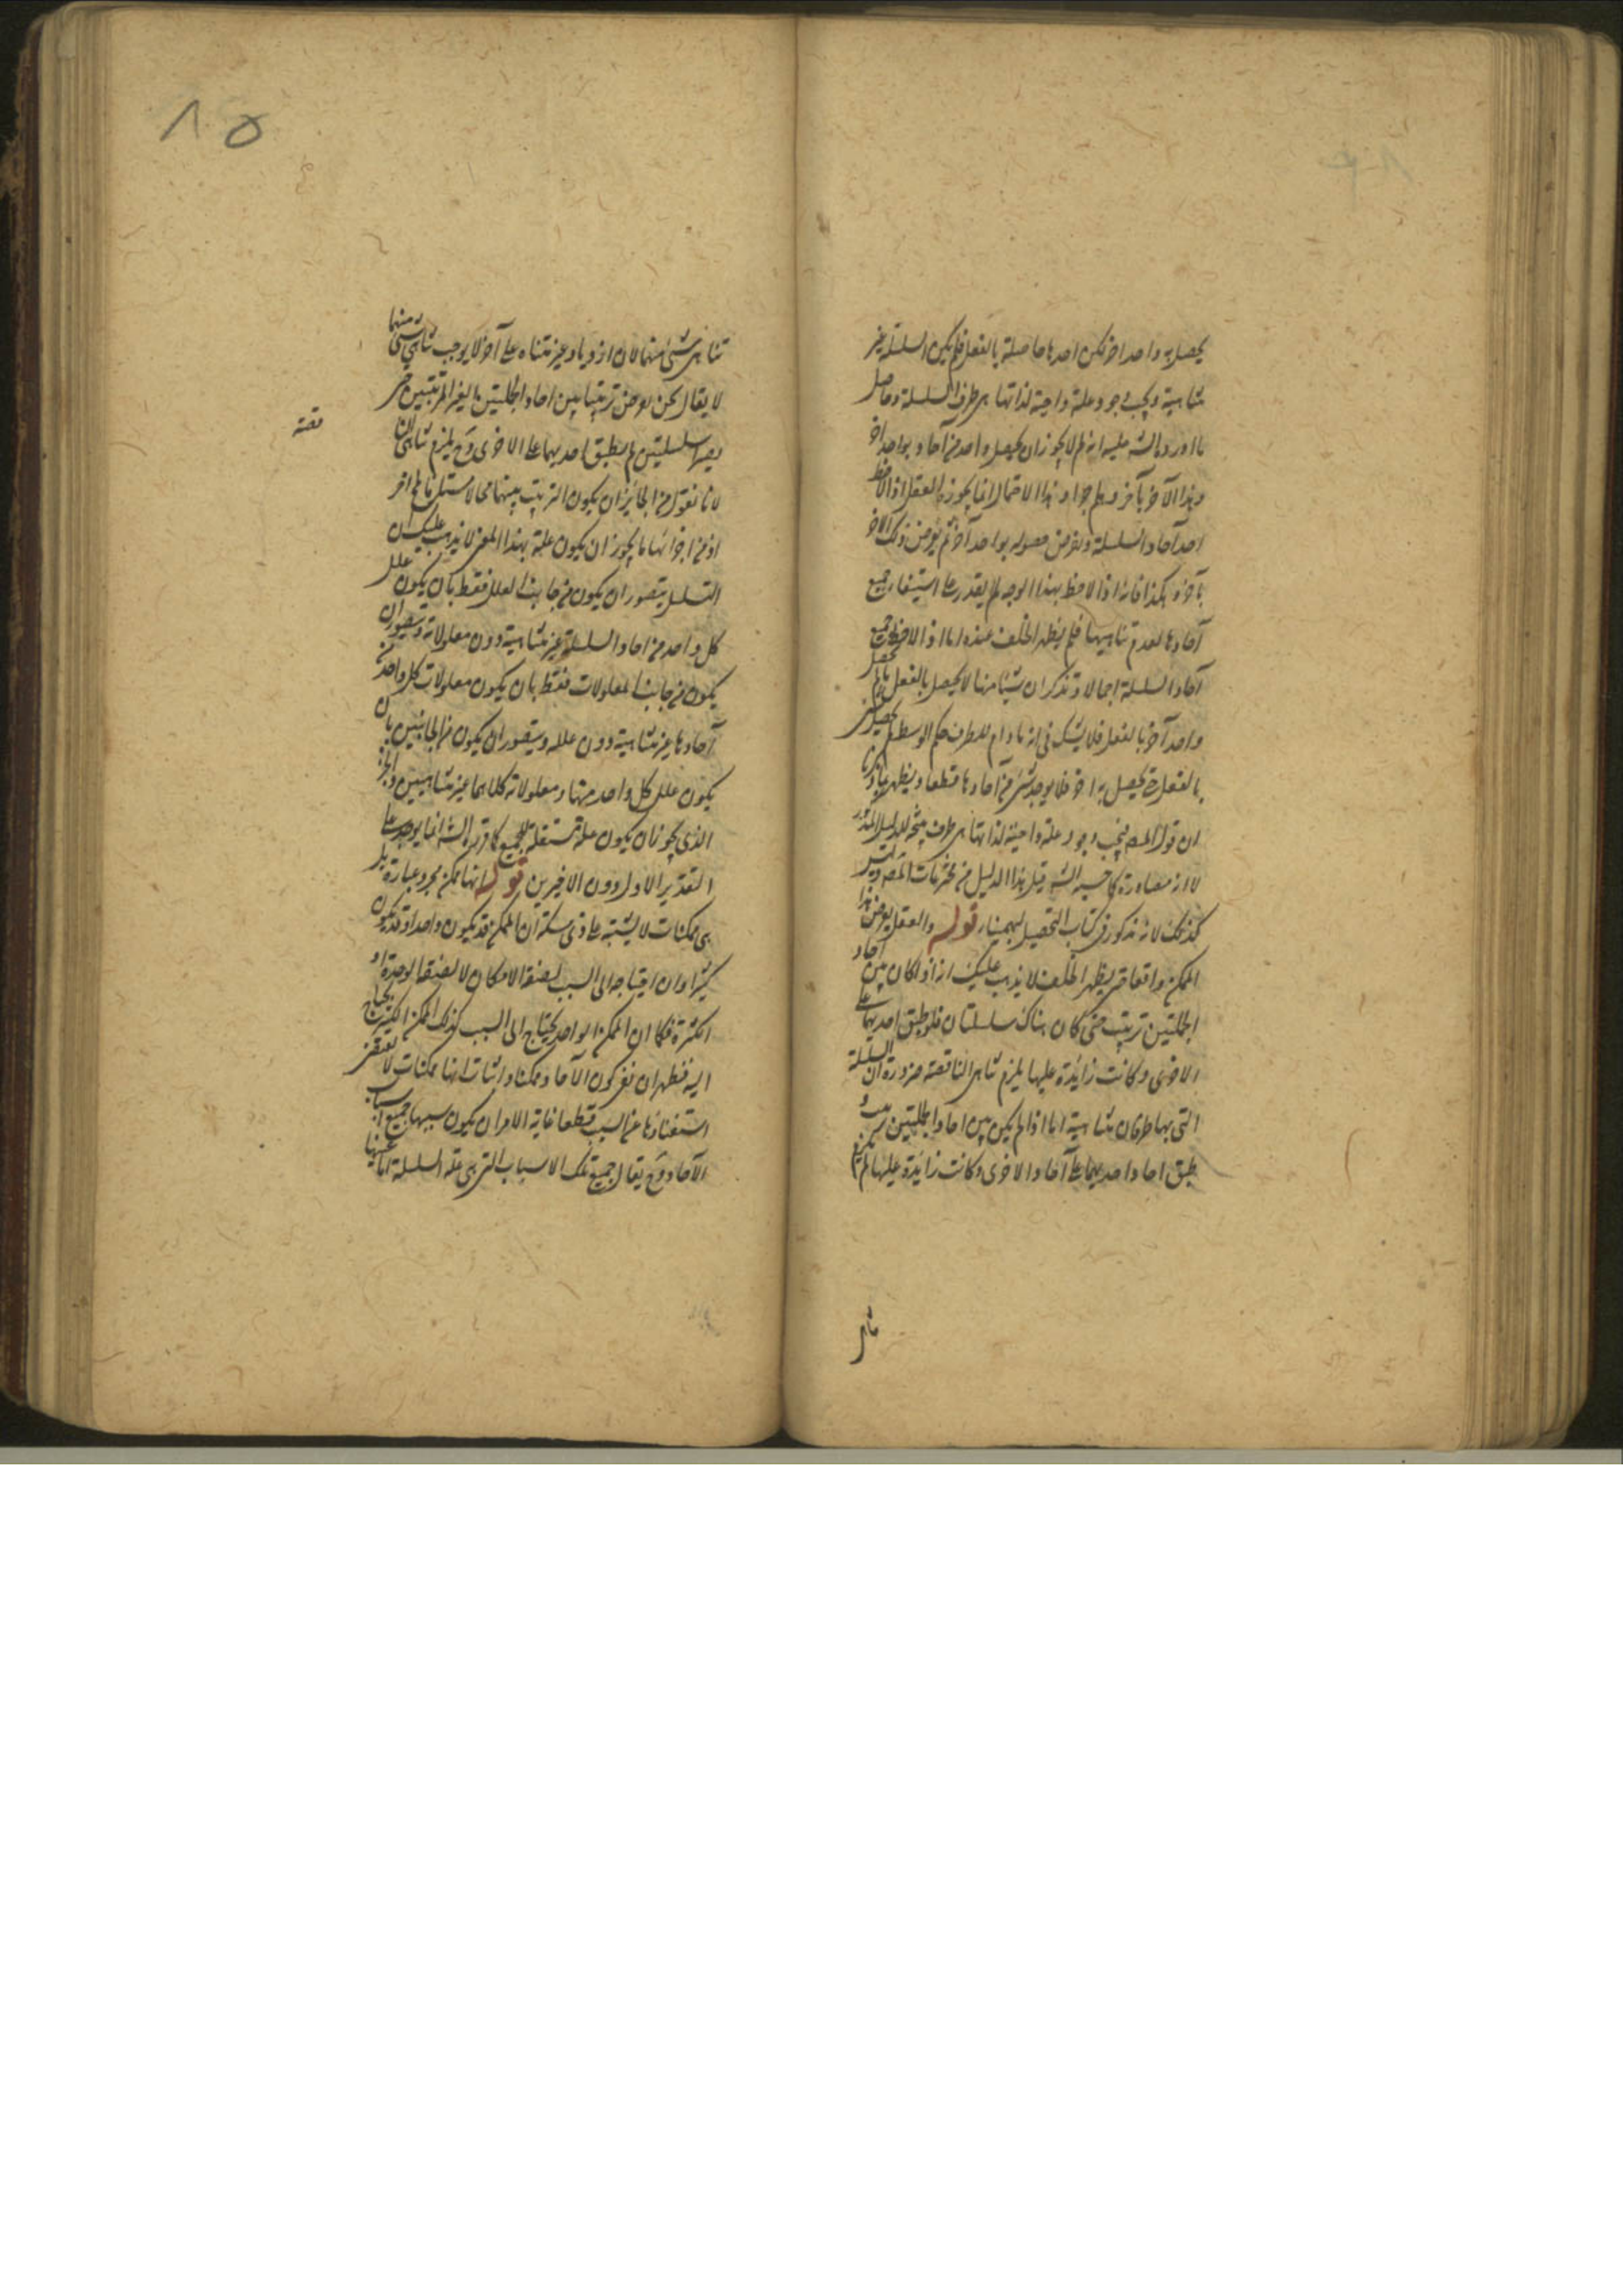 يحصل به واحد اخر لكن احدها حاصلة بالفعل فلم يكن السلسلة غير
متناهية ويجب وجود علة واجبة لذاتها هى طرف السلسلة وحاصل
ما اورده الش عليه انه لم لا يجوز ان يحصل واحد من آحاده بواحد اخر
وهذا الآخر بآخر وهلم جرا وهذا الاحتمال انما يجوزه العقل اذا لاحظ
احد آحاد السلسلة وفرض حصوله بواحد آخر ثم يفرض ذلك الاخر
بآخر وهكذا فانه اذا لاحظ بهذا الوجه لم يقدر على استيفاء جميع
آحادها لعدم تناهيها فلم يظهر الخلف عنده اما اذا لاحظ جميع
آحاد السلسلة اجمالا وتذكر ان شيئا منها لا يحصل بالفعل ما لم يحصل
واحد آخر بالفعل فلا يشك فى انه ما دام للطرف حكم الوسط لم يحصل شئ
بالفعل حتى يحصل به اخر فلا يوجد شئ من آحادها قطعا ويظهر بما ذكرنا
ان قول المص فيجب وجود علة واجبة لذاتها هى طرف نتيجة للدليل المذكور
لا انه مصادرة كما حسبه الش قيل هذا الدليل من مخترعات المص وليس
كذلك لانه مذكور فى كتاب التحصيل لبهمنيار قوله والعقل يفرض هذا
الممكن واقعا حتى يظهر الخلف لا يذهب عليك انه اذا كان بين آحاد
الجملتين ترتيب حتى كان هناك سلسلتان فلو طبق احديهما على
الاخرى وكانت زائدة عليها يلزم تناهى الناقصة ضرورة ان السلسلة
التى بها طرفان متناهية اما اذا لم يكن بين احاد الجملتين ترتيب و
طبق احاد احديهما على آحاد الاخرى وكانت زائدة عليها لم يلزم
تناهى
تناهى شئ منهما لان ازدياد غير متناه على آخر لا يوجب تناهى شئ منهما
لا يقال نحن نفرض ترتيبا بين احاد الجملتين الغير المترتبتين حتى
يصيرا سلسلتين ثم نطبق احديهما على الاخرى وح يلزم تناهى النا
قصة
لانا نقول من الجائز ان يكون الترتيب بينهما محالا مستلزما لمحال اخر
اذ من اجزائها ما يجوز ان يكون علة بهذا المعنى لا يذهب عليك ان
التسلسل يتصور ان يكون من جانب العلل فقط بان يكون علل
كل واحد من احاد السلسلة غير متناهية دون معلولاته ويتصور ان
يكون من جانب المعلولات فقط بان يكون معلولات كل واحد من
آحادها غير متناهية دون علله ويتصور ان يكون من الجانبين بان
يكون علل كل واحد منها ومعلولاته كلاهما غير متناهيين والجزء
الذى يجوز ان يكون علة مستقلة للجميع كما قرره الش انما يوجد على
التقدير الاول دون الاخيرين قوله انها ممكن مجرد عبارة بل
هى ممكنات لا يشتبه على ذى مسكة ان الممكن قد يكون واحدا وقد يكون
كثيرا وان احتياجه الى السبب لصفة الامكان لا لصفة الوحدة او
الكثرة فكما ان الممكن الواحد يحتاج الى السبب كذلك الممكن الكثير يحتاج
اليه فظهر ان نفى كون الآحاد ممكنا واثبات انها ممكنات لا يقتضى
استغنائها عن السبب قطعا غاية الامر ان يكون سببها جميع اسباب
الآحاد وح يقال جميع تلك الاسباب التى هى علة السلسلة اما عينها